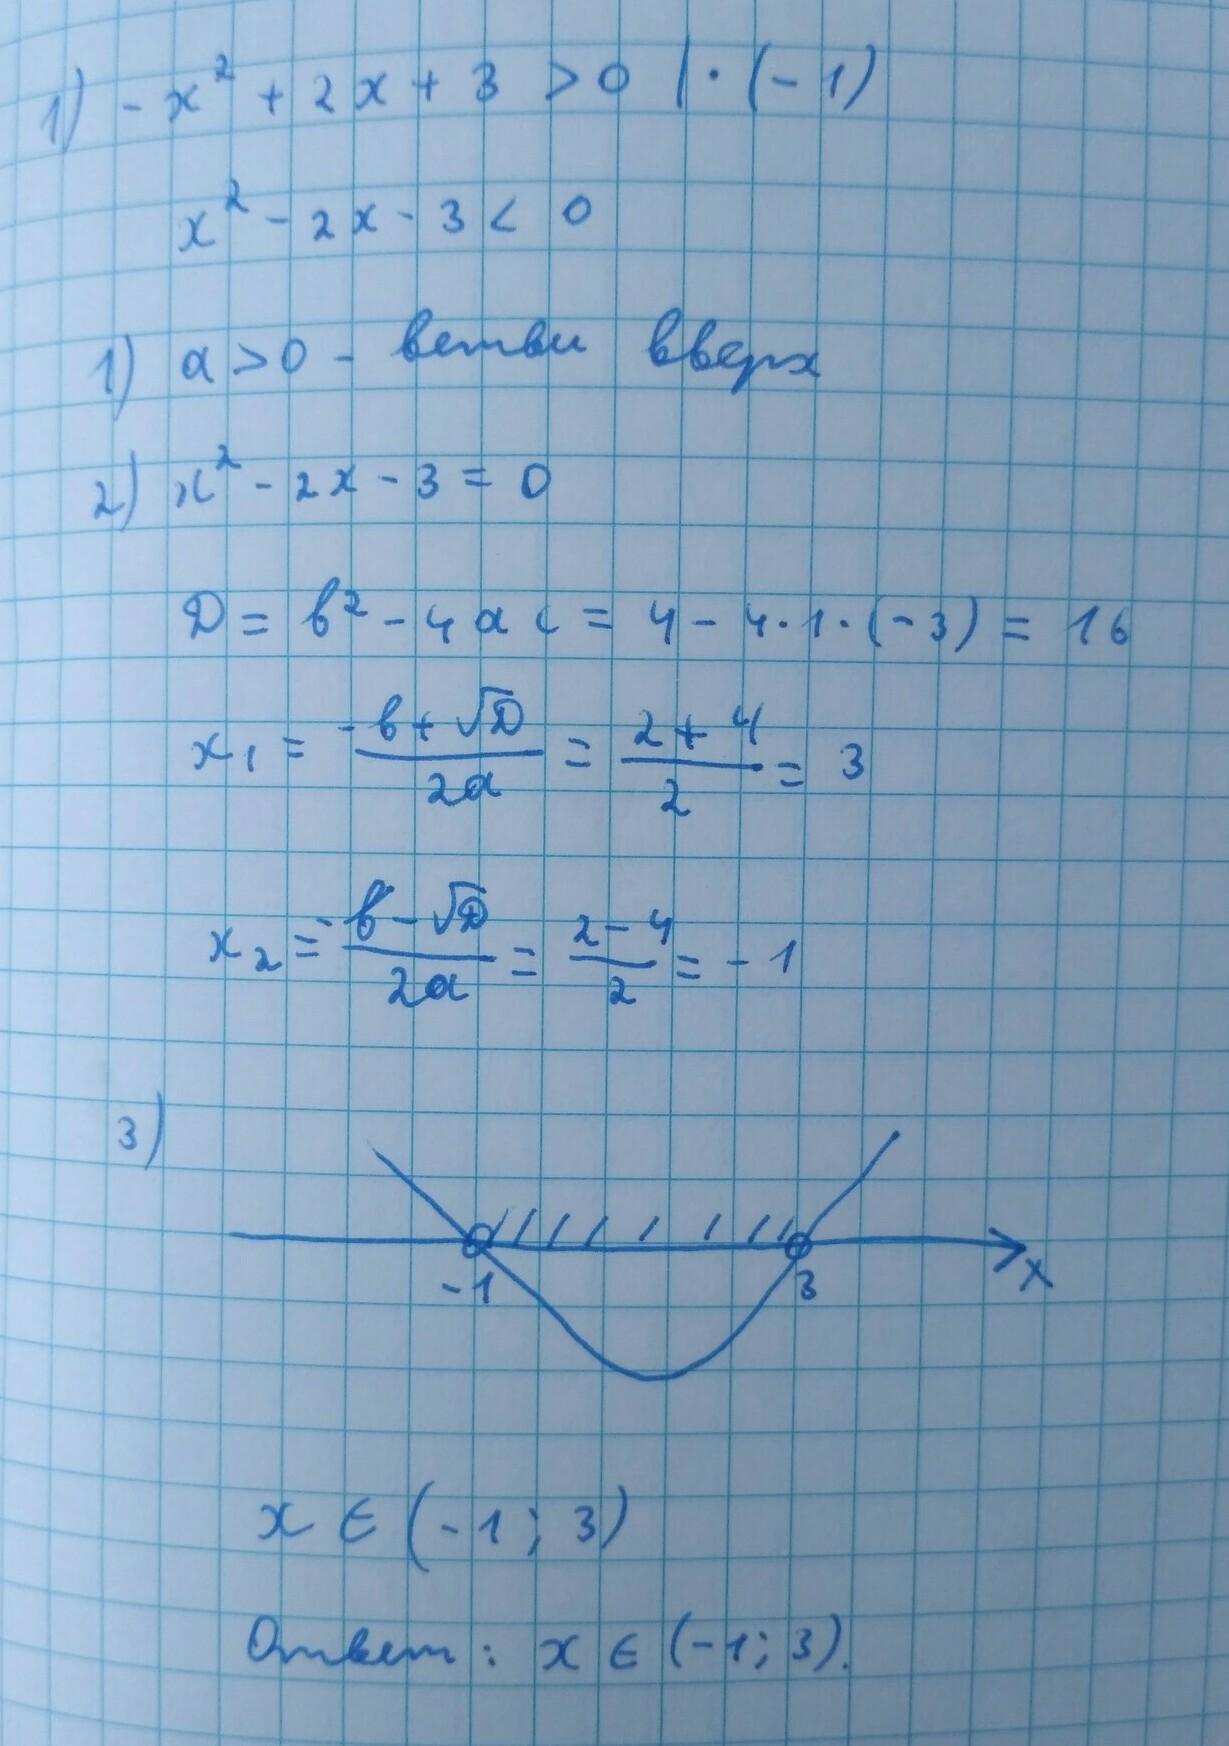 1) -x² + 2x + 3 > 0 | · (-1)
x² - 2x - 3 < 0
1) a > 0 - ветви вверх
2) x² - 2x - 3 = 0
D = b² - 4ac = 4 - 4·1·(-3) = 16
x₁ = (-b + √D)/(2a) = (2 + 4)/2 = 3
x₂ = (-b - √D)/(2a) = (2 - 4)/2 = -1
3)
-1 3 x
x ∈ (-1; 3)
Ответ: x ∈ (-1; 3).